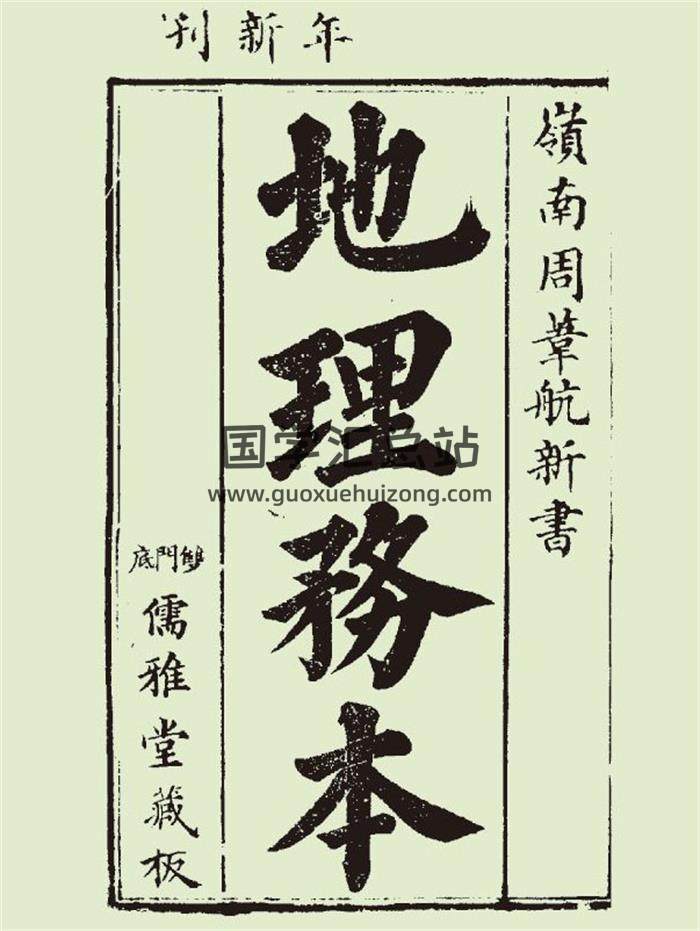 年新刊
嶺南周葦航新書
地理務本
雙門底
儒雅堂藏板
国学汇总站
www.guoxuehuizong.com